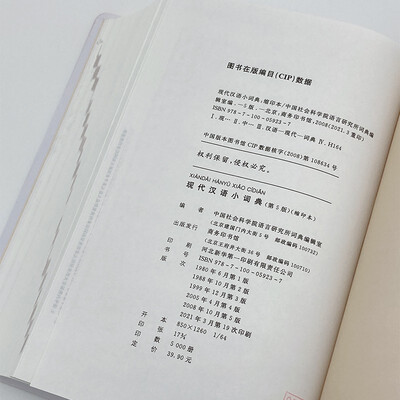 图书在版编目(CIP)数据
现代汉语小词典:缩印本/中国社会科学院语言研究所词典编
辑室编.—5版.—北京:商务印书馆,2008(2021.3重印)
ISBN 978-7-100-05923-7
Ⅰ.现… Ⅱ.中… Ⅲ.汉语—现代—词典 Ⅳ.H164
中国版本图书馆CIP数据核字(2008)第108634号
权利保留,侵权必究。
XIÀNDÀI HÀNYǓ XIǍO CÍDIǍN
现代汉语小词典(第5版)(缩印本)
编 者 中国社会科学院语言研究所词典编辑室
(北京建国门内大街5号 邮政编码100732)
出版发行 商务印书馆
(北京王府井大街36号 邮政编码100710)
印 刷 河北新华第一印刷有限责任公司
书 号 ISBN 978-7-100-05923-7
版 次 1980年6月第1版
1988年10月第2版
1999年12月第3版
2005年4月第4版
2008年10月第5版
2021年3月第19次印刷
开 本 850×1260 1/64
印 张 17¾
印 数 5 000册
定 价 39.90元